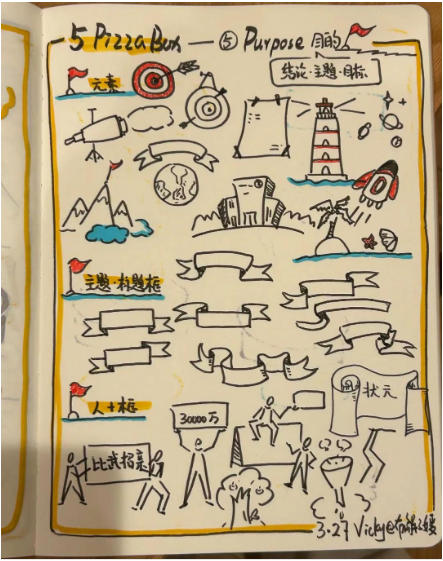 5 Pizza Box — ⑤ Purpose 目的
结论·主题·目标
元素
主题·标题框
人+框
30000万
状元
比武招亲
3.27 Vicky@布